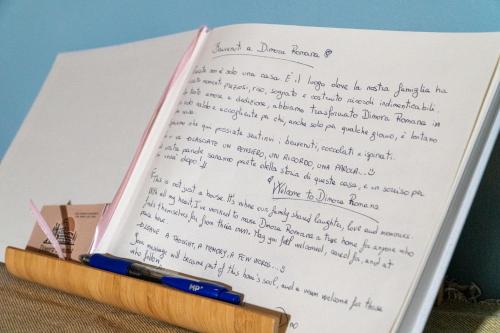 Benvenuti a Dimora Romana
Questa non è solo una casa. È il luogo dove la nostra famiglia ha
momenti preziosi, riso, sognato e costruito ricordi indimenticabili.
tanto amore e dedizione, abbiamo trasformato Dimora Romana in
nido caldo e accogliente per chi, anche solo per qualche giorno, è lontano
che qui possiate sentirvi: benvenuti, coccolati e ispirati.
LASCIATE UN PENSIERO, UN RICORDO, UNA PAROLA...
parole saranno parte della storia di questa casa, e un sorriso per
verrà dopo!!
Welcome to Dimora Romana
This is not just a house. It's where our family shared laughter, love and memories.
With all my heart, I've worked to make Dimora Romana a true home for anyone who
finds themselves far from their own. May you feel welcomed, cared for, and at
peace here.
LEAVE A THOUGHT, A MEMORY, A FEW WORDS...
Your message will become part of this home's soul, and a warm welcome for those
who follow!
MP